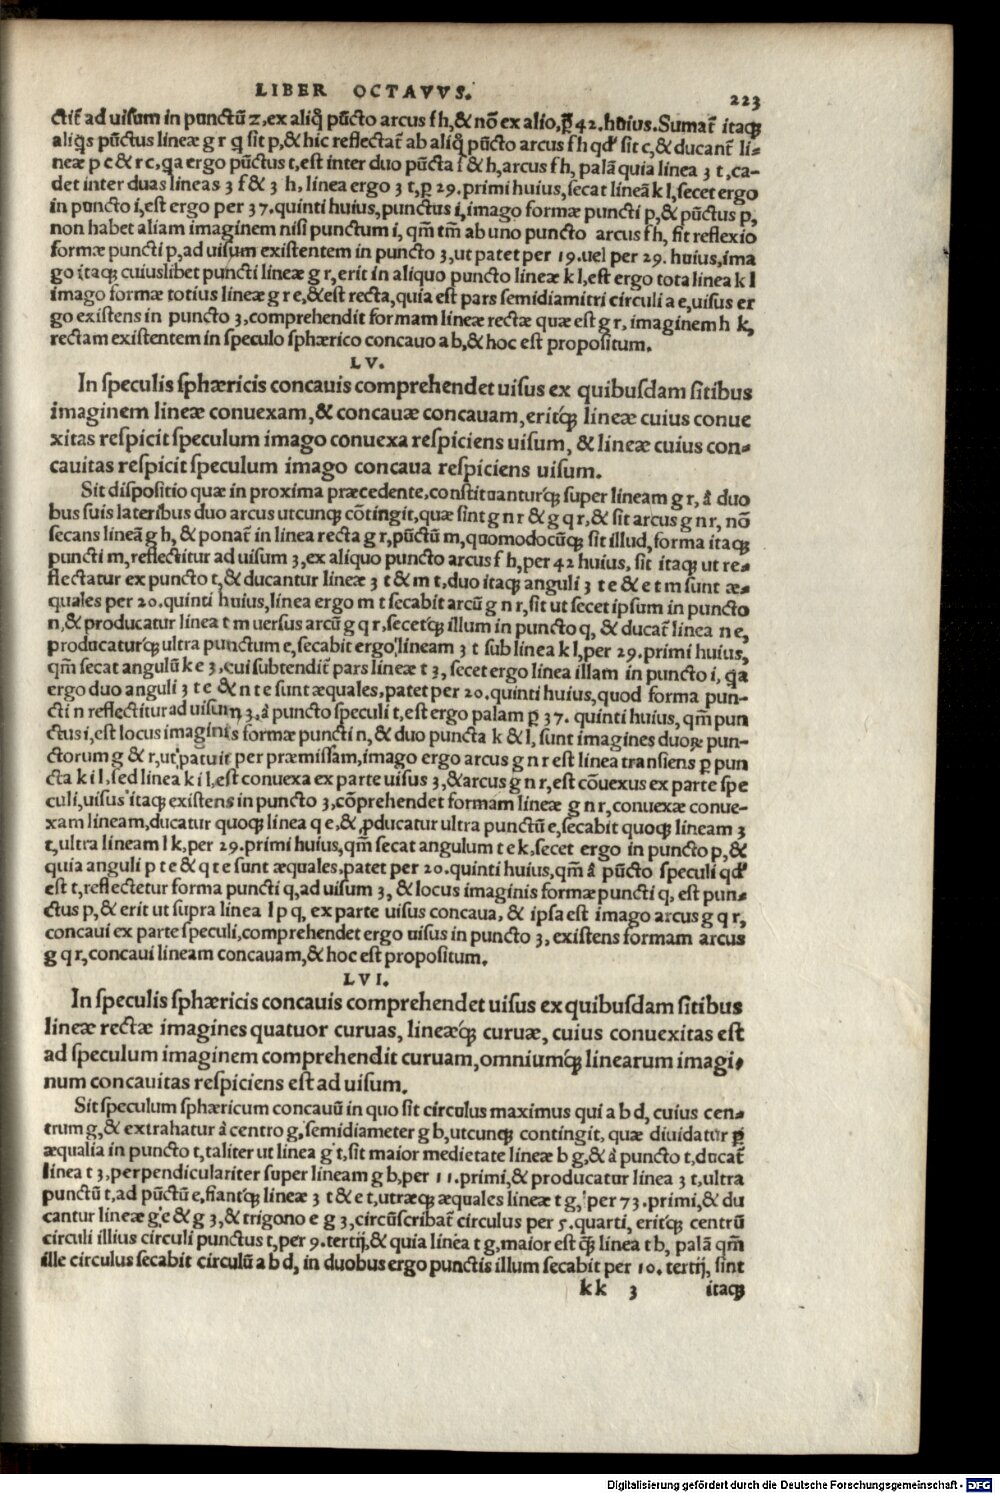 LIBER OCTAVVS.
223
ctit̃ ad uisum in punctũ z, ex aliq̃ pũcto arcus f h, & nõ ex alio, ꝑ 42. huius. Sumat̃ itaq;
aliq̃s pũctus lineæ g r q̃ sit p, & hic reflectat̃ ab aliq̃ pũcto arcus f h qd' sit c, & ducant̃ li-
neæ p c & r c, q̃a ergo pũctus t, est inter duo pũcta f & h, arcus f h, palã quia linea 3 t, ca-
det inter duas lineas 3 f & 3 h, linea ergo 3 t, ꝑ 29. primi huius, secat lineã k l, secet ergo
in puncto i, est ergo per 37. quinti huius, punctus i, imago formæ puncti p, & pũctus p,
non habet aliam imaginem nisi punctum i, qm̃ tm̃ ab uno puncto arcus f h, fit reflexio
formæ puncti p, ad uisum existentem in puncto 3, ut patet per 19. uel per 29. huius, ima
go itaq; cuiuslibet puncti lineæ g r, erit in aliquo puncto lineæ k l, est ergo tota linea k l
imago formæ totius lineæ g r e, & est recta, quia est pars semidiamitri circuli a e, uisus er
go existens in puncto 3, comprehendit formam lineæ rectæ quæ est g r, imaginem h k,
rectam existentem in speculo sphærico concauo a b, & hoc est propositum.
LV.
In speculis sphæricis concauis comprehendet uisus ex quibusdam sitibus
imaginem lineæ conuexam, & concauæ concauam, eritq́; lineæ cuius conue
xitas respicit speculum imago conuexa respiciens uisum, & lineæ cuius con-
cauitas respicit speculum imago concaua respiciens uisum.
Sit dispositio quæ in proxima præcedente, constituanturq́; super lineam g r, à duo
bus suis lateribus duo arcus utcunq; cõtingit, quæ sint g n r & g q r, & sit arcus g n r, nõ
secans lineã g h, & ponat̃ in linea recta g r, pũctũ m, quomodocũq; sit illud, forma itaq;
puncti m, reflectitur ad uisum 3, ex aliquo puncto arcus f h, per 42 huius, sit itaq; ut re-
flectatur ex puncto t, & ducantur lineæ 3 t & m t, duo itaq; anguli 3 t e & e t m sunt æ-
quales per 20. quinti huius, linea ergo m t secabit arcũ g n r, sit ut secet ipsum in puncto
n, & producatur linea t m uersus arcũ g q r, secetq́; illum in puncto q, & ducat̃ linea n e,
producaturq́; ultra punctum e, secabit ergo lineam 3 t sub linea k l, per 29. primi huius,
qm̃ secat angulũ k e 3, cui subtendit̃ pars lineæ t 3, secet ergo linea illam in puncto i, q̃a
ergo duo anguli 3 t e & n t e sunt æquales, patet per 20. quinti huius, quod forma pun-
cti n reflectitur ad uisum 3, à puncto speculi t, est ergo palam ꝑ 37. quinti huius, qm̃ pun
ctus i, est locus imaginis formæ puncti n, & duo puncta k & l, sunt imagines duoꝝ pun-
ctorum g & r, ut patuit per præmissam, imago ergo arcus g n r est linea transiens ꝑ pun
cta k i l, sed linea k i l, est conuexa ex parte uisus 3, & arcus g n r, est cõuexus ex parte spe
culi, uisus itaq; existens in puncto 3, cõprehendet formam lineæ g n r, conuexæ conue-
xam lineam, ducatur quoq; linea q e, & ꝓducatur ultra punctũ e, secabit quoq; lineam 3
t, ultra lineam l k, per 29. primi huius, qm̃ secat angulum t e k, secet ergo in puncto p, &
quia anguli p t e & q t e sunt æquales, patet per 20. quinti huius, qm̃ à pũcto speculi qd'
est t, reflectetur forma puncti q, ad uisum 3, & locus imaginis formæ puncti q, est pun-
ctus p, & erit ut supra linea l p q, ex parte uisus concaua, & ipsa est imago arcus g q r,
concaui ex parte speculi, comprehendet ergo uisus in puncto 3, existens formam arcus
g q r, concaui lineam concauam, & hoc est propositum.
LVI.
In speculis sphæricis concauis comprehendet uisus ex quibusdam sitibus
lineæ rectæ imagines quatuor curuas, lineæq́; curuæ, cuius conuexitas est
ad speculum imaginem comprehendit curuam, omniumq́; linearum imagi-
num concauitas respiciens est ad uisum.
Sit speculum sphæricum concauũ in quo sit circulus maximus qui a b d, cuius cen-
trum g, & extrahatur à centro g, semidiameter g b, utcunq; contingit, quæ diuidatur ꝑ
æqualia in puncto t, taliter ut linea g t, sit maior medietate lineæ b g, & à puncto t, ducat̃
linea t 3, perpendiculariter super lineam g b, per 11. primi, & producatur linea 3 t, ultra
punctũ t, ad pũctũ e, fiantq́; lineæ 3 t & e t, utræq; æquales lineæ t g, per 73. primi, & du
cantur lineæ g e & g 3, & trigono e g 3, circũscribat̃ circulus per 5. quarti, eritq́; centrũ
circuli illius circuli punctus t, per 9. tertij, & quia linea t g, maior est q̃; linea t b, palã qm̃
ille circulus secabit circulũ a b d, in duobus ergo punctis illum secabit per 10. tertij, sint
kk 3 itaq;
Digitalisierung gefördert durch die Deutsche Forschungsgemeinschaft - DFG